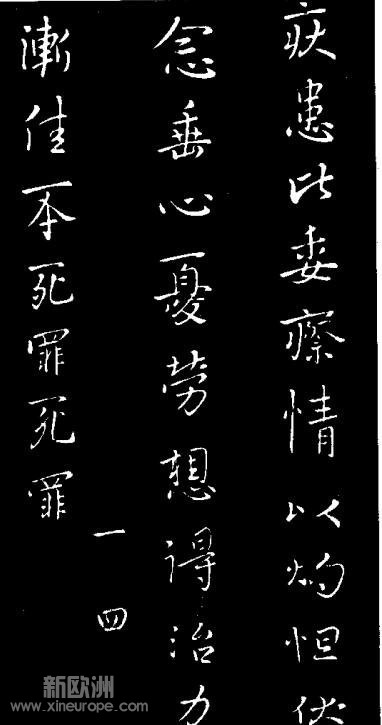 疾患比委瘵情以灼怛伏
念垂心憂勞想得治力
漸佳死罪死罪
一四
新欧洲
www.xineurope.com